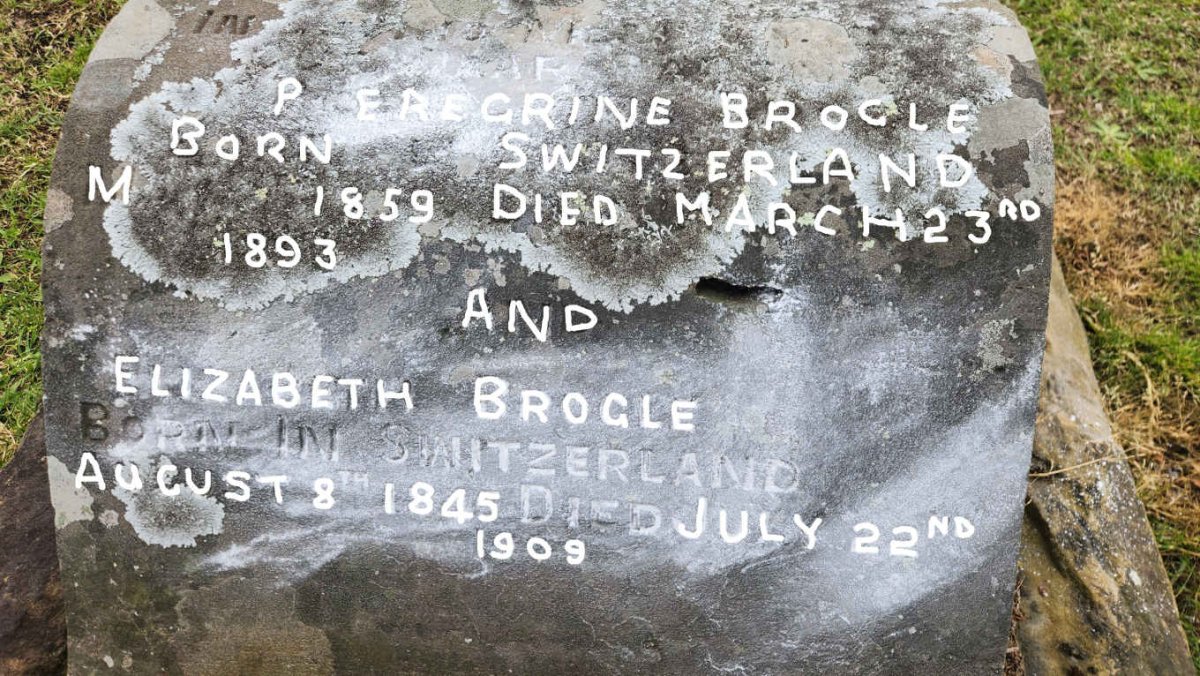 P EREGRINE BROGLE
BORN SWITZERLAND
M 1859 DIED MARCH 23RD
1893
AND
ELIZABETH BROGLE
BORN IN SWITZERLAND
AUGUST 8TH 1845 DIED JULY 22ND
1909